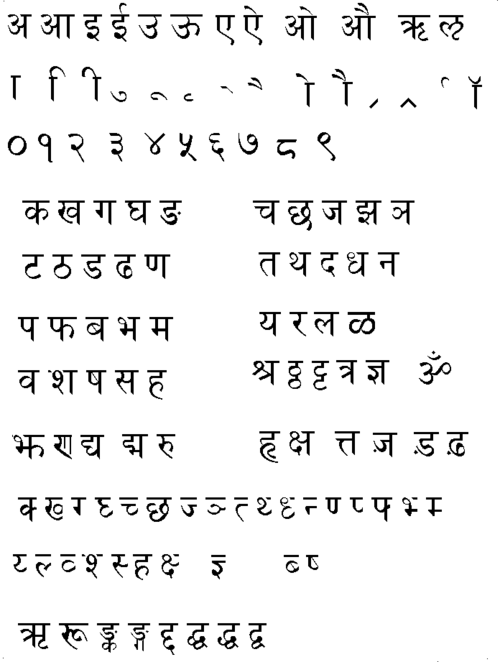 अ आ इ ई उ ऊ ए ऐ ओ औ ऋ ऌ
ा ि ी ु ृ ॅ े ै ो ौ ॉ
० १ २ ३ ४ ५ ६ ७ ८ ९
क ख ग घ ङ च छ ज झ ञ
ट ठ ड ढ ण त थ द ध न
प फ ब भ म य र ल ळ
व श ष स ह श्र ठ्ठ ट्ट त्र ज्ञ ॐ
झ ण द्य द्म रु हृ क्ष त्त ज़ ड़ ढ़
क्‍ ख्‍ ग्‍ घ्‍ च्‍ छ्‍ ज्‍ ञ्‍ त्‍ थ्‍ ध्‍ न्‍ ण्‍ प्‍ फ्‍ भ्‍ म्‍
य्‍ ल्‍ व्‍ श्‍ स्‍ ह्‍ क्ष्‍ ज्ञ्‍ ब्‍ ष्‍
ॠ रू ङ्क ङ्ग द्द द्ध द्ध द्व